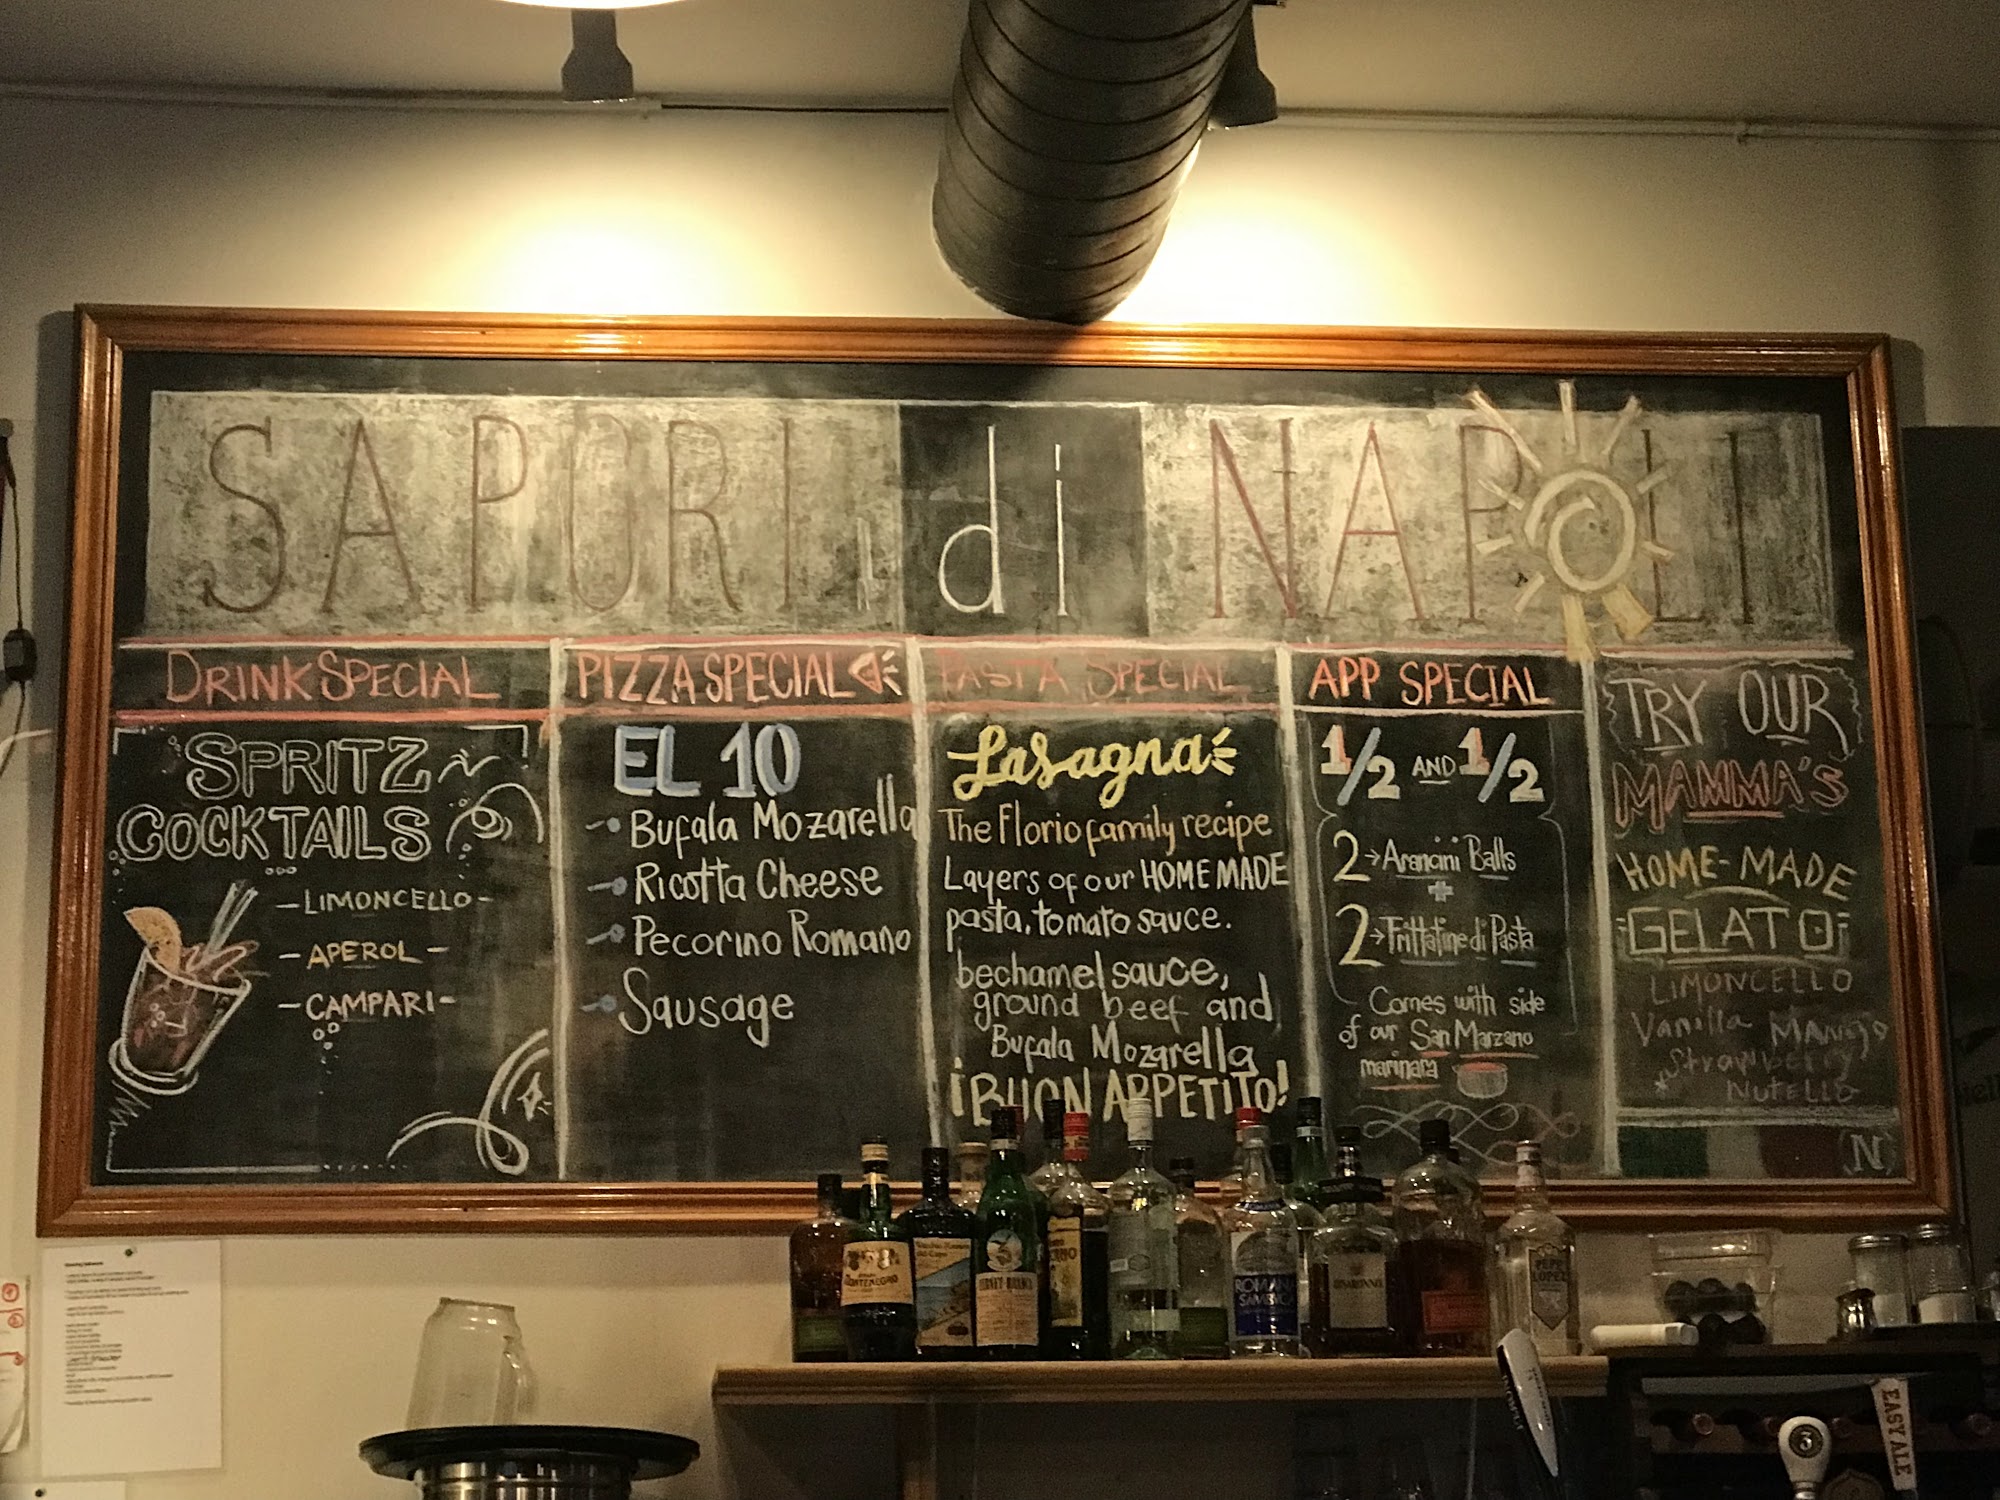 SAPORI di NAPOLI
DRINK SPECIAL
SPRITZ
COCKTAILS
-LIMONCELLO-
-APEROL-
-CAMPARI-
PIZZA SPECIAL
EL 10
Bufala Mozarella
Ricotta Cheese
Pecorino Romano
Sausage
PASTA SPECIAL
Lasagna
The Florio family recipe
Layers of our HOME MADE
pasta, tomato sauce.
bechamel sauce,
ground beef and
Bufala Mozarella
¡BUON APPETITO!
APP SPECIAL
1/2 AND 1/2
2→Arancini Balls
+
2→Frittatine di Pasta
Comes with side
of our San Marzano
marinara
TRY OUR
MAMMA'S
HOME-MADE
GELATO
LIMONCELLO
Vanilla MANGO
Strawberry
NUTELLO
N
MONTENEGRO
FERNET-BRANCA
ROMANA
SAMBUCA
DISARONNO
PEPE
LOPEZ
EAST ALE